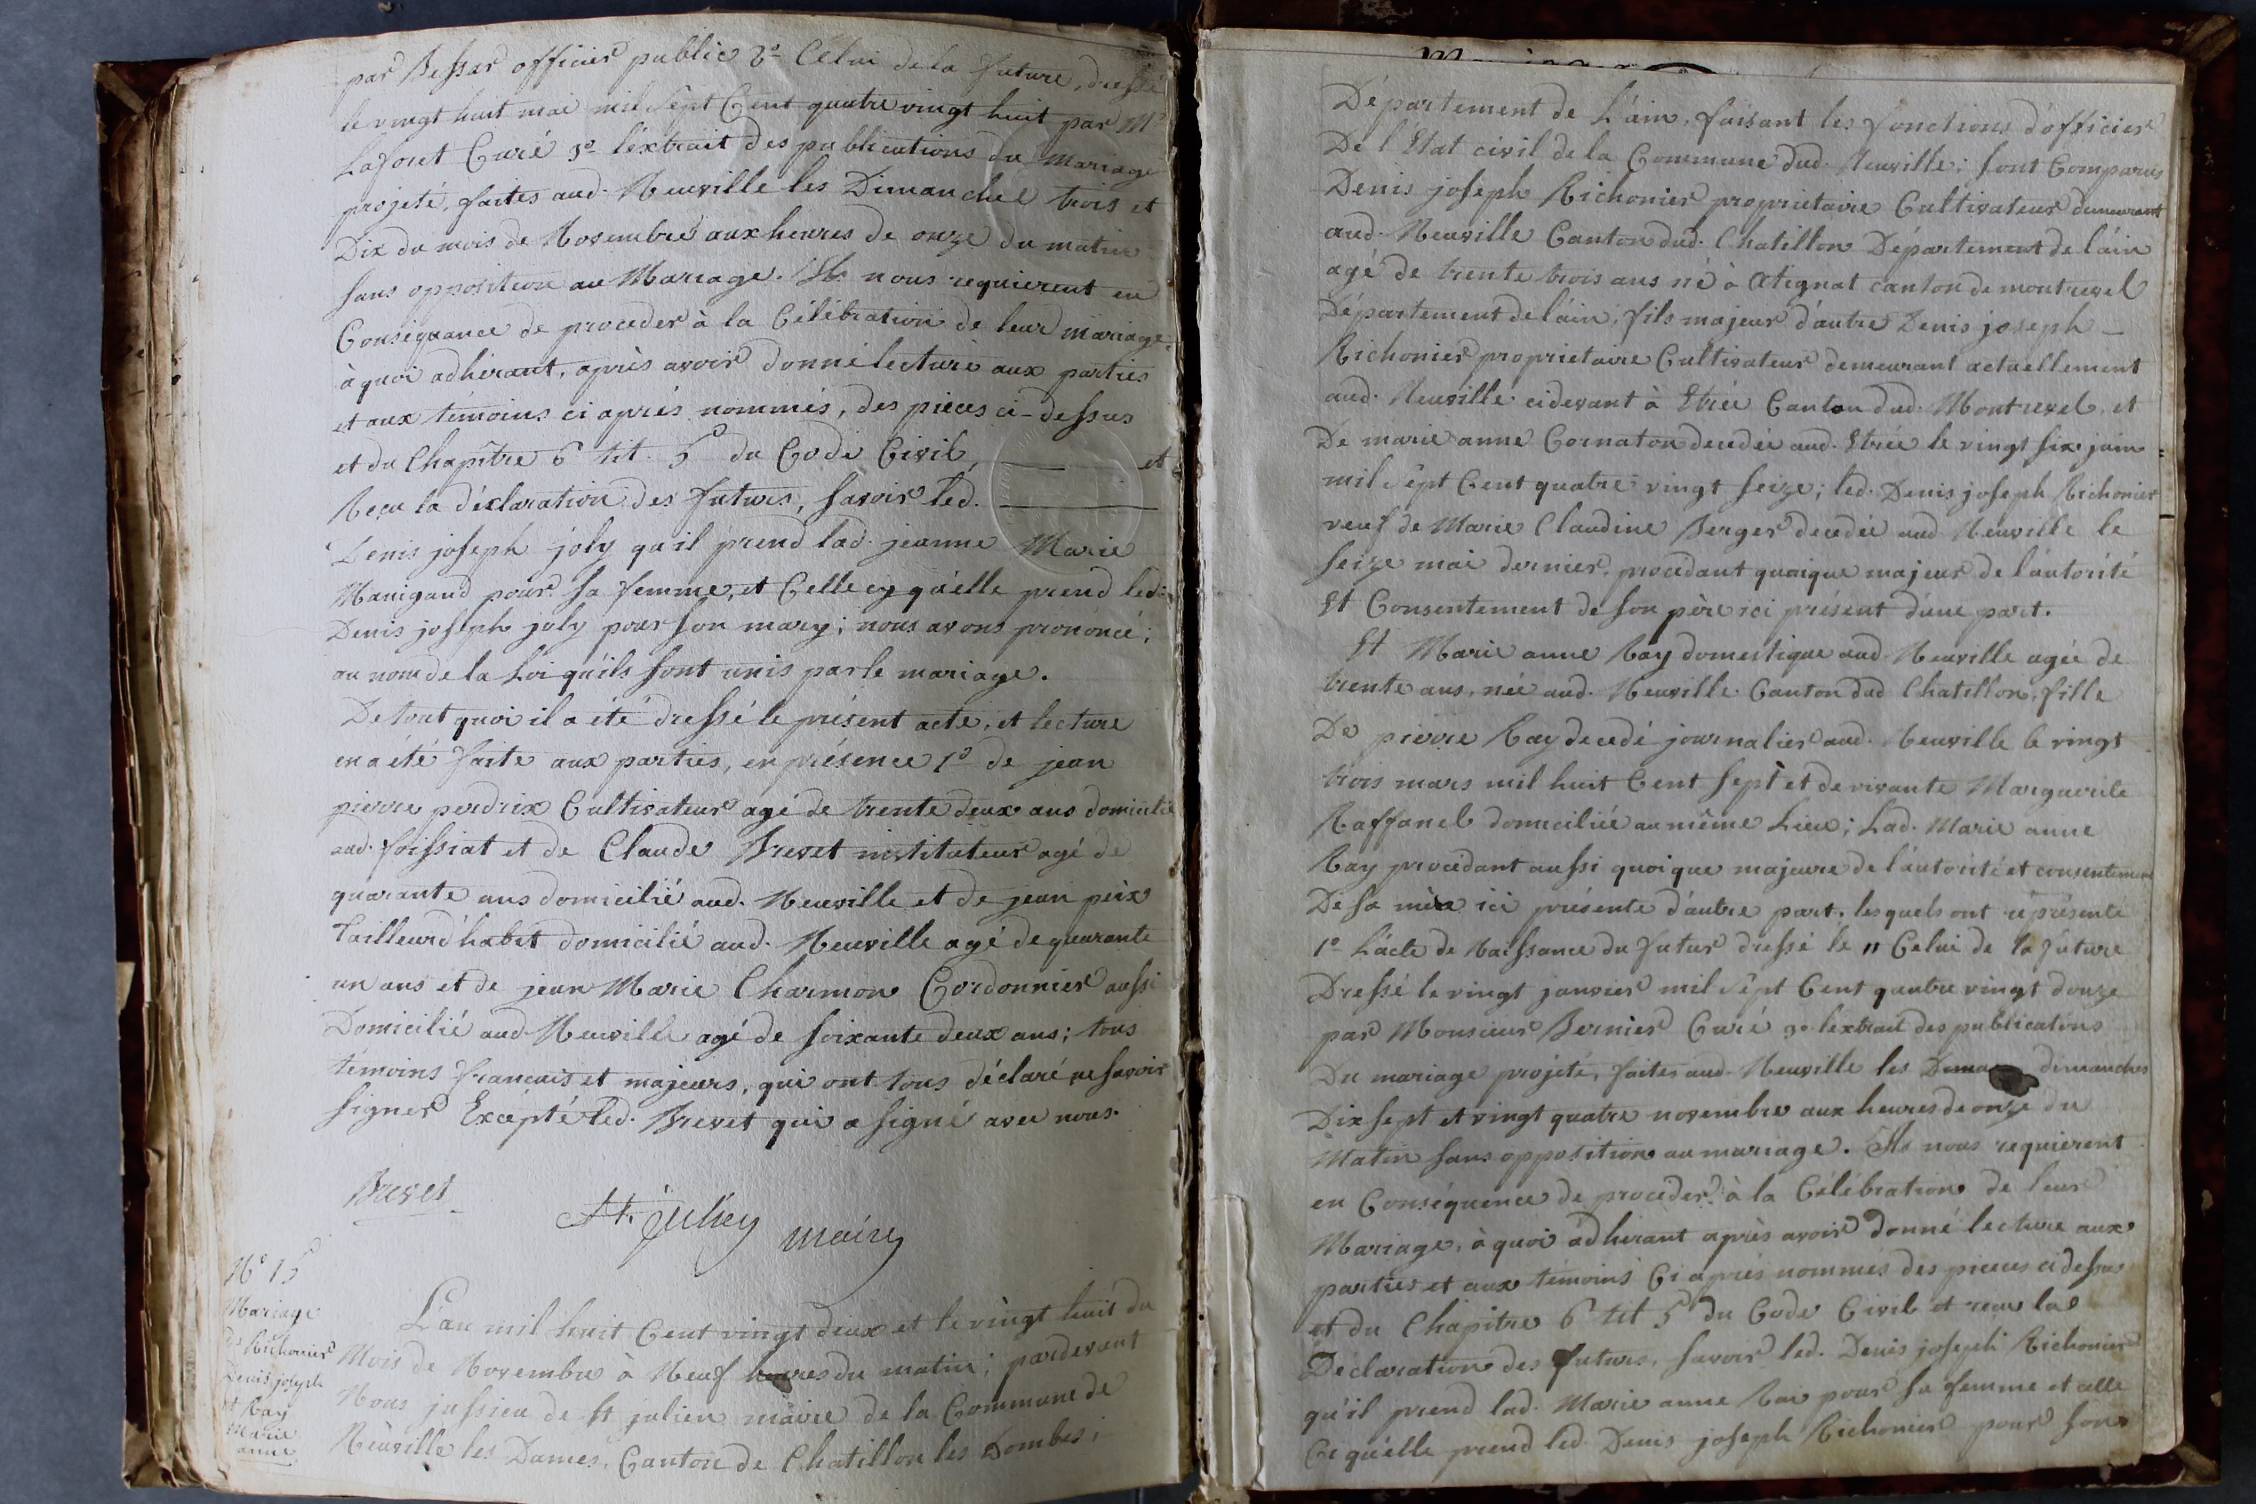 par Bessar officier public 2º Celui de la future, dressé
le vingt huit mai mil sept Cent quatre vingt huit par Mr
Lafont Curé 3º l'extrait des publications du Mariage
projeté, faites aud. Neuville les Dimanche trois et
Dix du mois de Novembre aux heures de onze du matin
sans opposition au Mariage. Ils nous requierent en
Conséquance de proceder à la Célébration de leur mariage,
à quoi adhérant, après avoir donné lecture aux parties
et aux témoins ci après nommés, des pieces ci-dessus
et du Chapitre 6 tit. 5 du Code Civil, et
Reçu la déclaration des futurs, savoir led.
Denis joseph joly qu'il prend lad. jeanne Marie
Manigand pour sa femme, et Celle cy qu'elle prend led.
Denis joseph joly pour son mary; nous avons prononcé;
au nom de la Loi qu'ils sont unis par le mariage.
De tout quoi il a été dressé le présent acte, et lecture
en a été faite aux parties, en présence 1º de jean
pierre perdrix Cultivateur agé de trente deux ans domicilié
aud. foissiat et de Claude Brevet instituteur agé de
quarante ans domicilié aud. Neuville et de jean peix
Tailleur d'habit domicilié aud. Neuville agé de quarante
un ans et de jean Marie Charmon Cordonnier aussi
Domicilié aud. Neuville agé de soixante deux ans; tous
témoins francais et majeurs, qui ont tous déclaré ne savoir
signer Excépté led. Brevet qui a signé avec nous.
Brevet
St. julien maire
Nº 15
Mariage
de Richonier
Denis joseph
et Ray
Marie
anne
L'an mil huit Cent vingt deux et le vingt huit du
Mois de Novembre à Neuf heures du matin; pardevant
Nous jussieu de St julien maire de la Commune de
Neuville les Dames, Canton de Chatillon les Dombes;
Département de L'ain, faisant les fonctions d'officier
De l'Etat civil de la Commune dud. Neuville; sont Comparus
Denis joseph Richonier propriétaire Cultivateur demeurant
aud. Neuville Canton dud. Chatillon Département de l'ain
agé de trente trois ans né à Atignat canton de montrevel
Département de l'ain, fils majeur d'autre Denis joseph
Richonier propriétaire Cultivateur demeurant actuellement
aud. Neuville cidevant à Etréé Canton dud. Montrevel, et
De marie anne Cornaton decedée aud. Etréé le vingt six juin
mil sept Cent quatre vingt seize; led. Denis joseph Richonier
veuf de Marie Claudine Berger decedée aud Neuville le
seize mai dernier, procedant quoique majeur de l'autorité
Et Consentement de son père ici présent d'une part.
Et Marie anne Ray domestique aud. Neuville agée de
trente ans, née aud. Neuville Canton dud Chatillon, fille
De pierre Ray decedé journalier aud. Neuville le vingt
trois mars mil huit Cent sept et de vivante Marguerite
Raffanel domiciliée au même Lieu; Lad. Marie anne
Ray procédant aussi quoique majeure de l'autorité et consentement
De sa mère ici présente d'autre part. lesquels ont représenté
1º L'acte de Naissance du futur dressé le " Celui de la future
Dressé le vingt janvier mil sept Cent quatre vingt douze
par Monsieur Bernier Curé 3º l'extrait des publicatons
Du mariage projeté, faites aud. Neuville les dimanches
Dix sept et vingt quatre novembre aux heures de onze du
Matin sans opposition au mariage. Ils nous requierent
en Conséquence de proceder à la Célébration de leur
Mariage, à quoi adhérant après avoir donné lecture aux
parties et aux témoins Ci après nommés des pieces ci dessus
et du Chapitre 6 tit 5 du Code Civil et recu la
Déclaration des futurs, savoir led. Denis joseph Richonier
qu'il prend lad. Marie anne Rai pour sa femme et celle
Ci qu'elle prend led. Denis joseph Richonier pour son